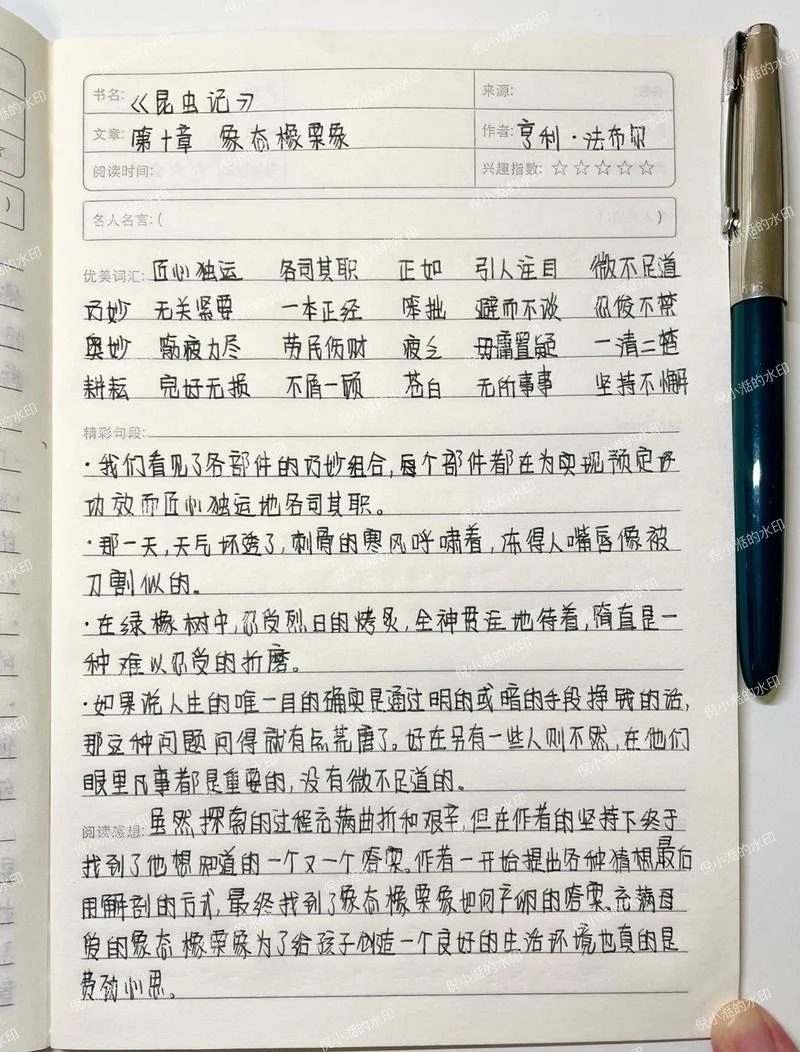 书名:《昆虫记》 来源:
文章:第十章 象态橡栗象 作者:亨利·法布尔
阅读时间: 兴趣指数:☆☆☆☆☆
名人名言:( )
优美词汇:匠心独运 各司其职 正如 引人注目 微不足道
巧妙 无关紧要 一本正经 笨拙 避而不谈 忍俊不禁
奥妙 筋疲力尽 劳民伤财 疲乏 毋庸置疑 一清二楚
耕耘 完好无损 不屑一顾 苍白 无所事事 坚持不懈
精彩句段:
·我们看见了各部件的巧妙组合,每个部件都在为实现预定好
功效而匠心独运地各司其职。
·那一天,天气坏透了,刺骨的寒风呼啸着,冻得人嘴唇像被
刀割似的。
·在绿橡树中,忍受烈日的烤炙,全神贯注地待着,简直是一
种难以忍受的折磨。
·如果说人生的唯一目的确实是通过明的或暗的手段挣钱的话,
那这种问题问得就有点荒唐了。好在另有一些人则不然,在他们
眼里凡事都是重要的,没有微不足道的。
阅读感想:虽然探索的过程充满曲折和艰辛,但在作者的坚持下终于
找到了他想知道的一个又一个答案。作者一开始提出各种猜想最后
用解剖的方式,最终找到了象态橡栗象如何产卵的答案。充满母
爱的象态橡栗象为了给孩子创造一个良好的生活环境也真的是
费劲心思。
倪小湉的水印